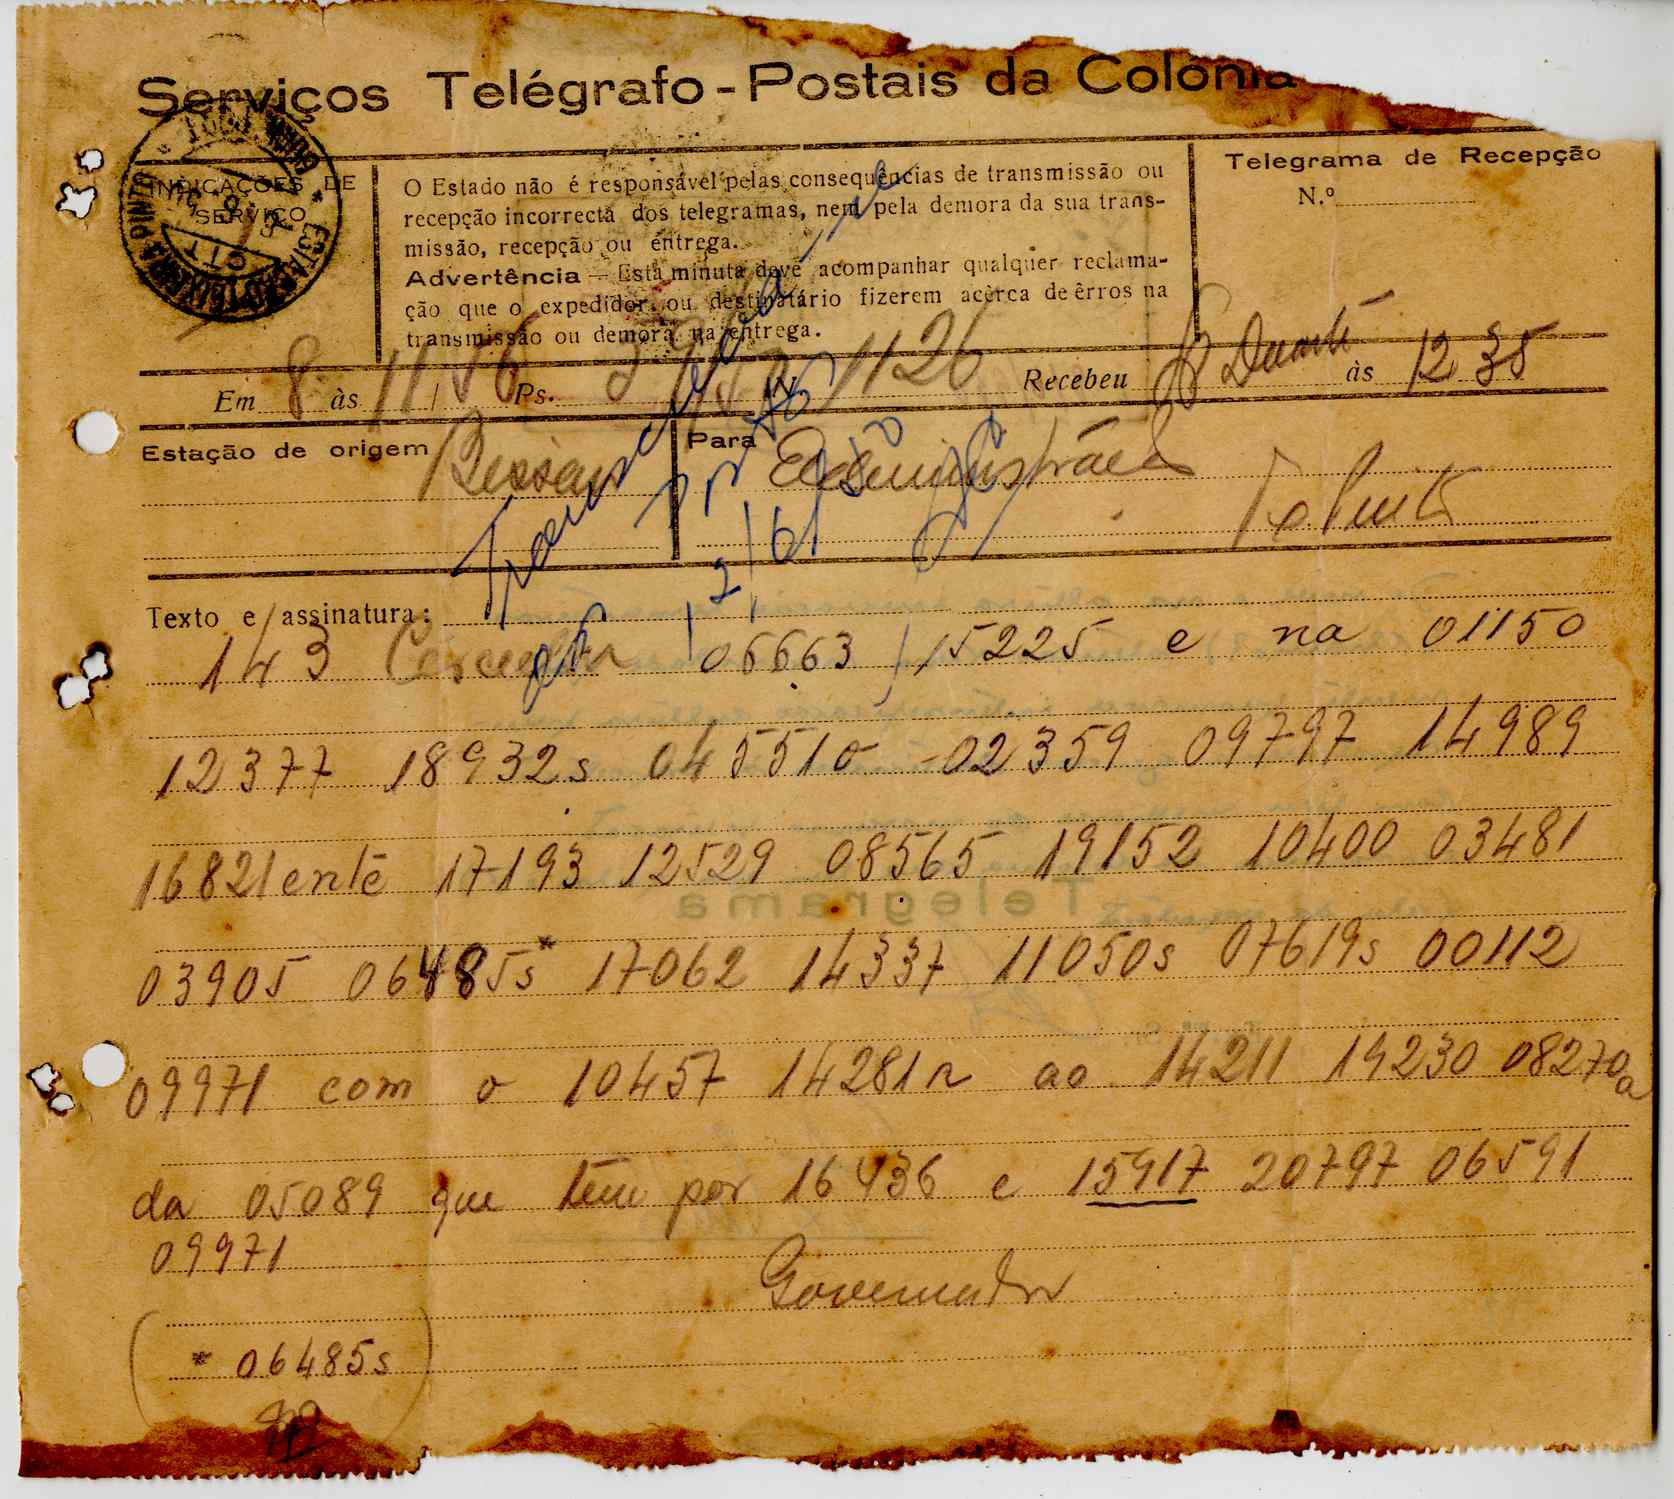 Serviços Telégrafo-Postais da Colónia
INDICAÇÕES DE
SERVIÇO
O Estado não é responsável pelas consequências de transmissão ou
recepção incorrecta dos telegramas, nem pela demora da sua trans-
missão, recepção ou entrega.
Advertência — Esta minuta deve acompanhar qualquer reclama-
ção que o expedidor ou destinatário fizerem acêrca de êrros na
transmissão ou demora na entrega.
Telegrama de Recepção
N.º
Em 8 às 11 56 Ps. N. 1126 Recebeu Duarte às 12 35
Estação de origem Bissau
Para
Texto e assinatura:
143 06663 15225 e na 01150
12377 18932s 04551o - 02359 09797 14989
16821ente 17193 12529 08565 19152 10400 03481
03905 06485s* 17062 14337 11050s 07619s 00112
09971 com o 10457 14281r ao 14211 19230 08270a
da 05089 que tem por 16436 e 15917 20797 06591
09971
Governador
(* 06485s)
Telegrama